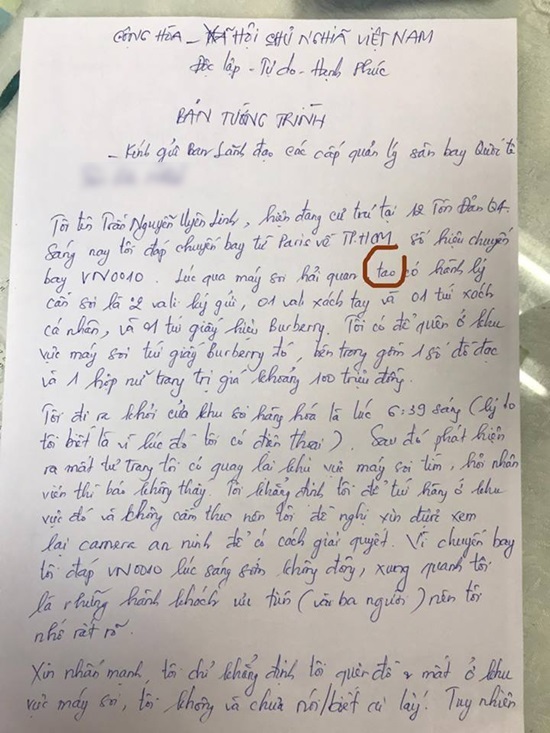 CỘNG HÒA - XÃ HỘI CHỦ NGHĨA VIỆT NAM
Độc lập - Tự do - Hạnh Phúc
BẢN TƯỜNG TRÌNH
- Kính gửi Ban Lãnh đạo các cấp quản lý sân bay Quốc tế
Tôi tên Trần Nguyễn Uyên Linh, hiện đang cư trú tại 12 Tôn Đản Q4.
Sáng nay tôi đáp chuyến bay từ Paris về TP.HCM số hiệu chuyến
bay VN0010. Lúc qua máy soi hải quan tao có hành lý
cần soi là 2 vali ký gửi, 01 vali xách tay và 01 túi xách
cá nhân, và 01 túi giấy hiệu Burberry. Tôi có để quên ở khu
vực máy soi túi giấy Burberry đó, bên trong gồm 1 số đồ đạc
và 1 hộp nữ trang trị giá khoảng 100 triệu đồng.
Tôi đi ra khỏi cửa khu soi hàng hóa là lúc 6:39 sáng (lý do
tôi biết là vì lúc đó tôi có điện thoại). Sau đó phát hiện
ra mất tư trang tôi có quay lại khu vực máy soi tìm, hỏi nhân
viên thì báo không thấy. Tôi khẳng định tôi để túi hàng ở khu
vực đó và không cầm theo nên tôi đề nghị xin được xem
lại camera an ninh để có cách giải quyết. Vì chuyến bay
tôi đáp VN0010 lúc sáng sớm không đông, xung quanh tôi
là những hành khách ưu tiên (vài ba người) nên tôi
nhớ rất rõ.
Xin nhấn mạnh, tôi chỉ khẳng định tôi quên đồ & mất ở khu
vực máy soi, tôi không và chưa nói/biết ai lấy! Tuy nhiên